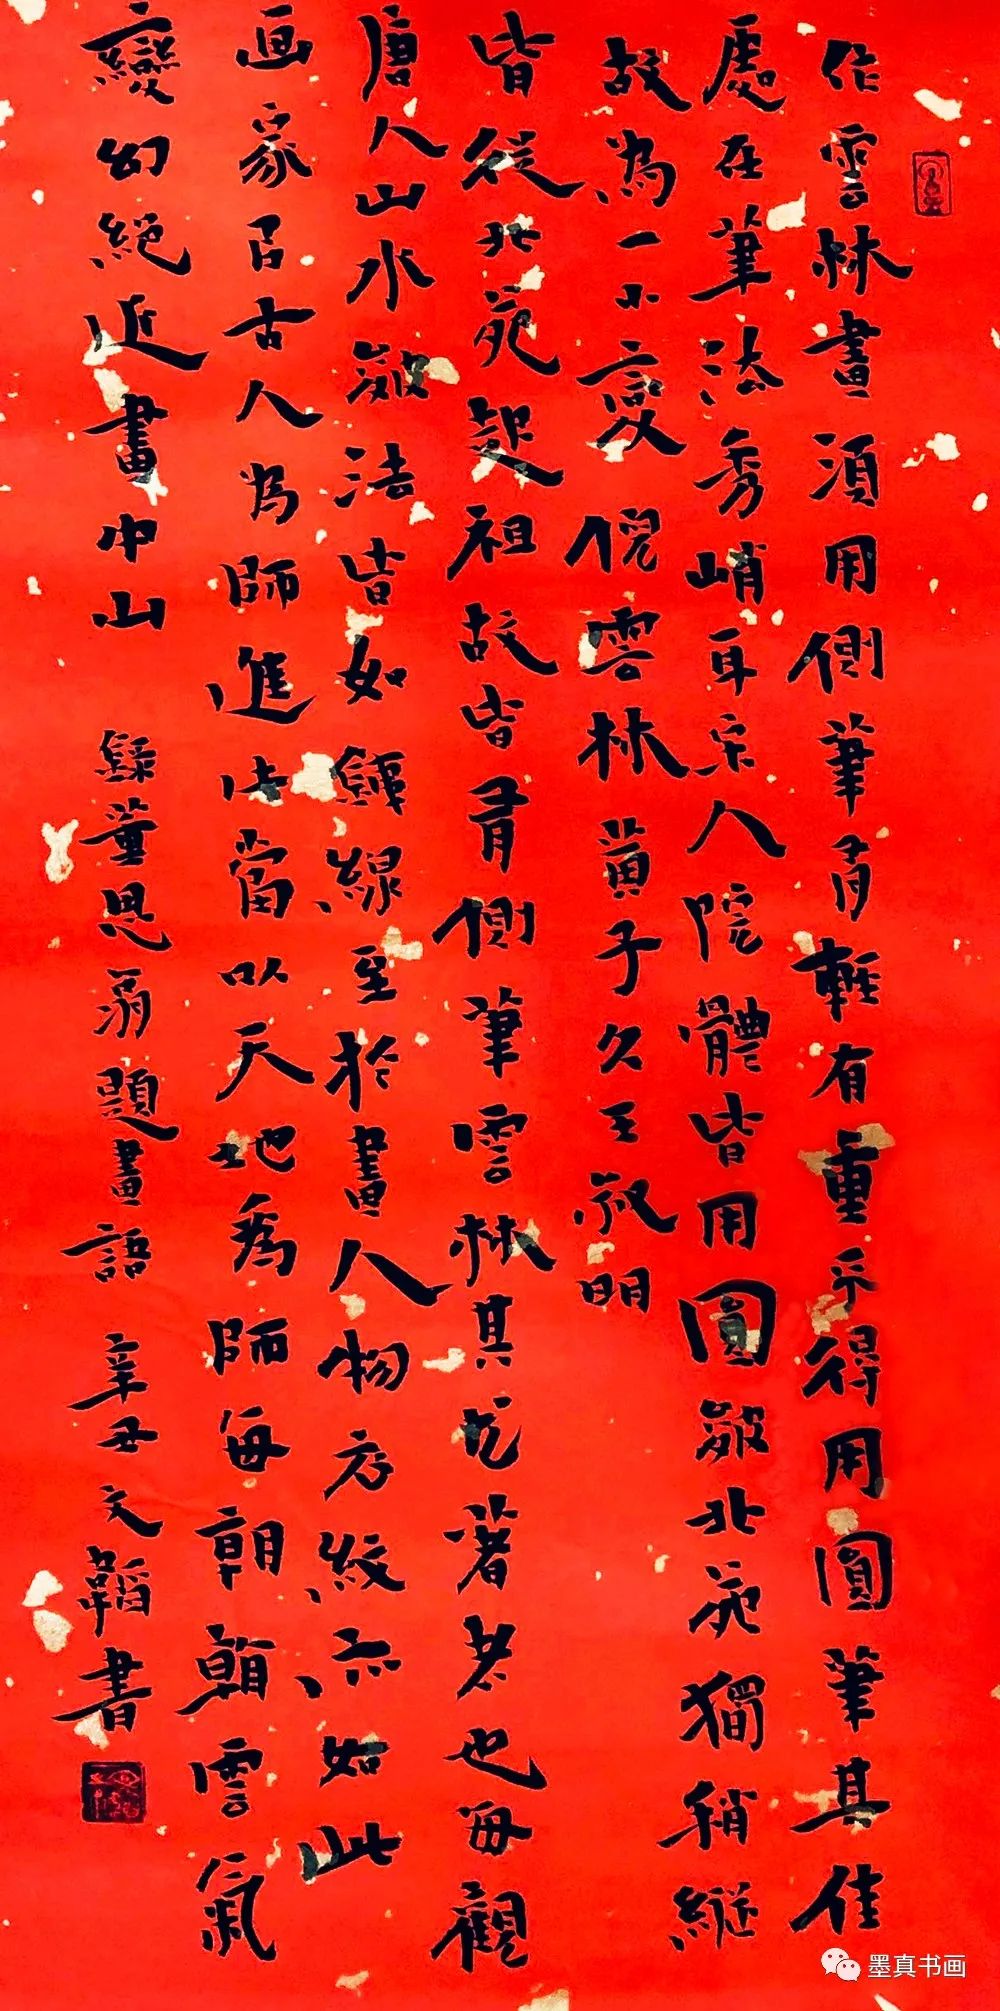 作雲林畫須用側筆有輕有重不得用圓筆其佳
處在筆法秀峭耳宋人院體皆用圓皴北苑獨稍縱
故為一小變倪雲林黄子久王叔明
皆從北苑起祖故皆有側筆雲林其尤著者也每觀
唐人山水皴法皆如鐵線至於畫人物衣紋亦如此
画家以古人為師進此當以天地為師每朝看雲氣
變幻絕近畫中山 錄董思翁題畫語 辛丑文韜書
墨真书画